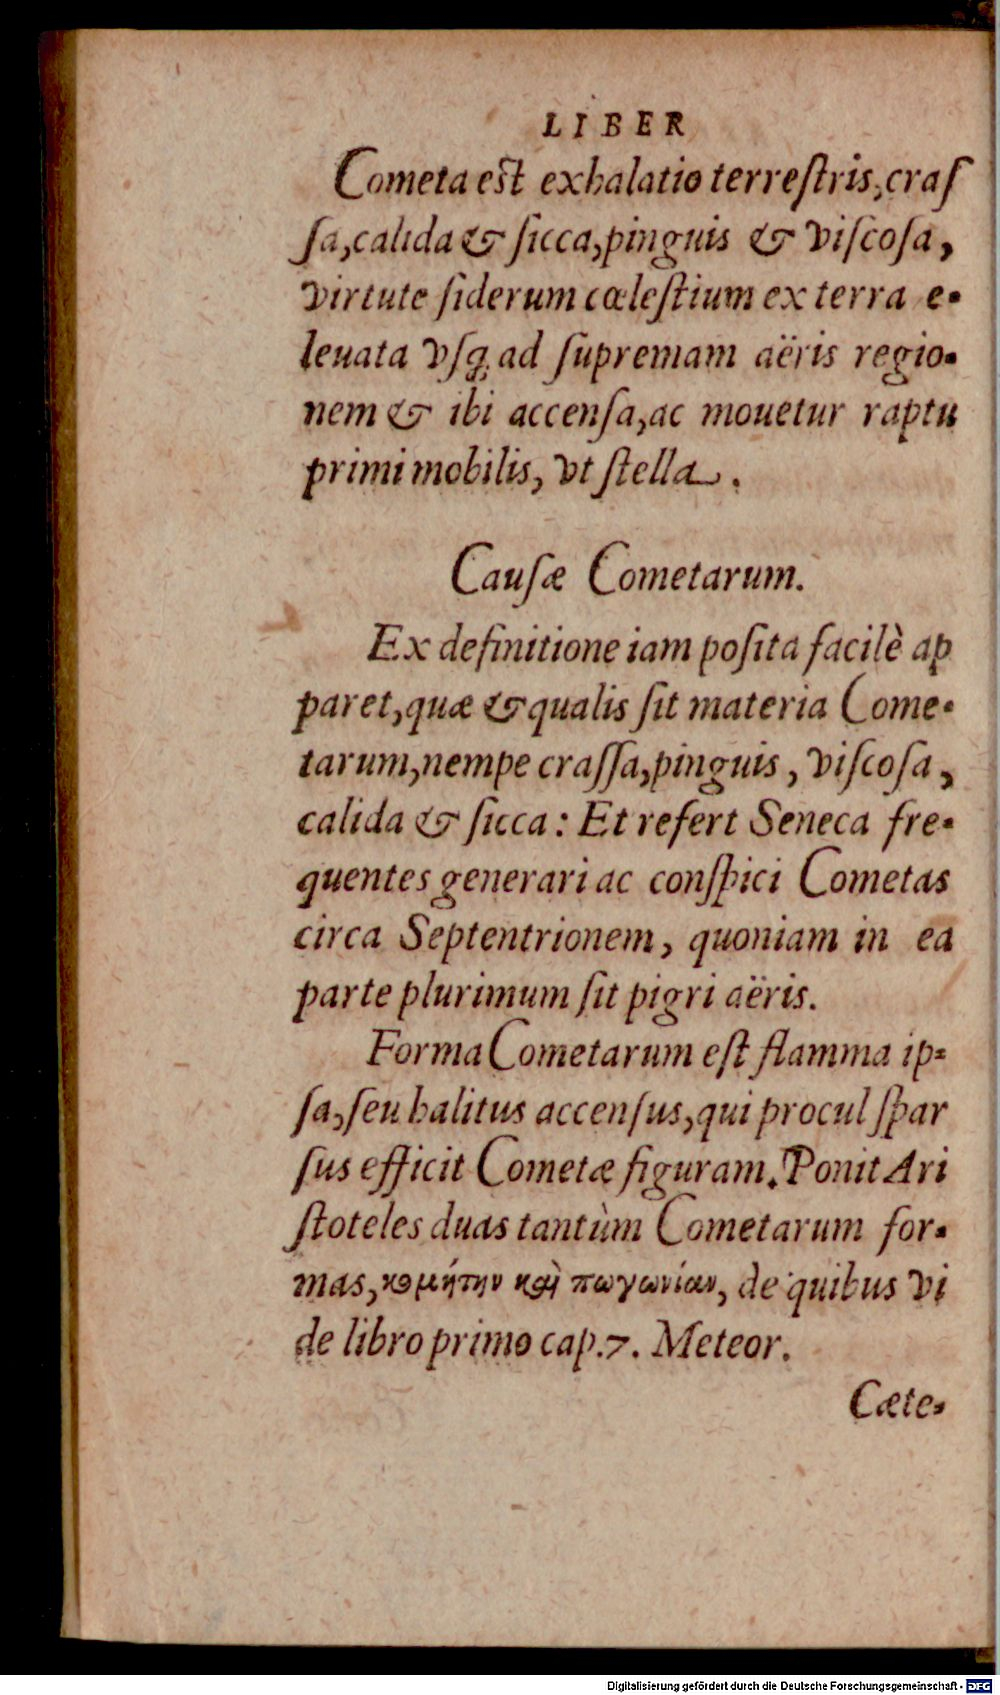 LIBER
Cometa est exhalatio terreſtris, craſ
ſa, calida & ſicca, pinguis & viſcoſa,
virtute ſiderum cœleſtium ex terra e-
leuata vſq; ad ſupremam aëris regio-
nem & ibi accenſa, ac mouetur raptu
primi mobilis, vt ſtella.
Cauſæ Cometarum.
Ex definitione iam poſita facilè ap
paret, quæ & qualis ſit materia Come-
tarum, nempe craſſa, pinguis, viſcoſa,
calida & ſicca: Et refert Seneca fre-
quentes generari ac conſpici Cometas
circa Septentrionem, quoniam in ea
parte plurimum ſit pigri aëris.
Forma Cometarum eſt flamma ip-
ſa, ſeu halitus accenſus, qui procul ſpar
ſus efficit Cometæ figuram. Ponit Ari
ſtoteles duas tantùm Cometarum for-
mas, κομήτην καὶ πωγωνίαν, de quibus vi
de libro primo cap. 7. Meteor.
Cæte-
Digitalisierung gefördert durch die Deutsche Forschungsgemeinschaft - DFG